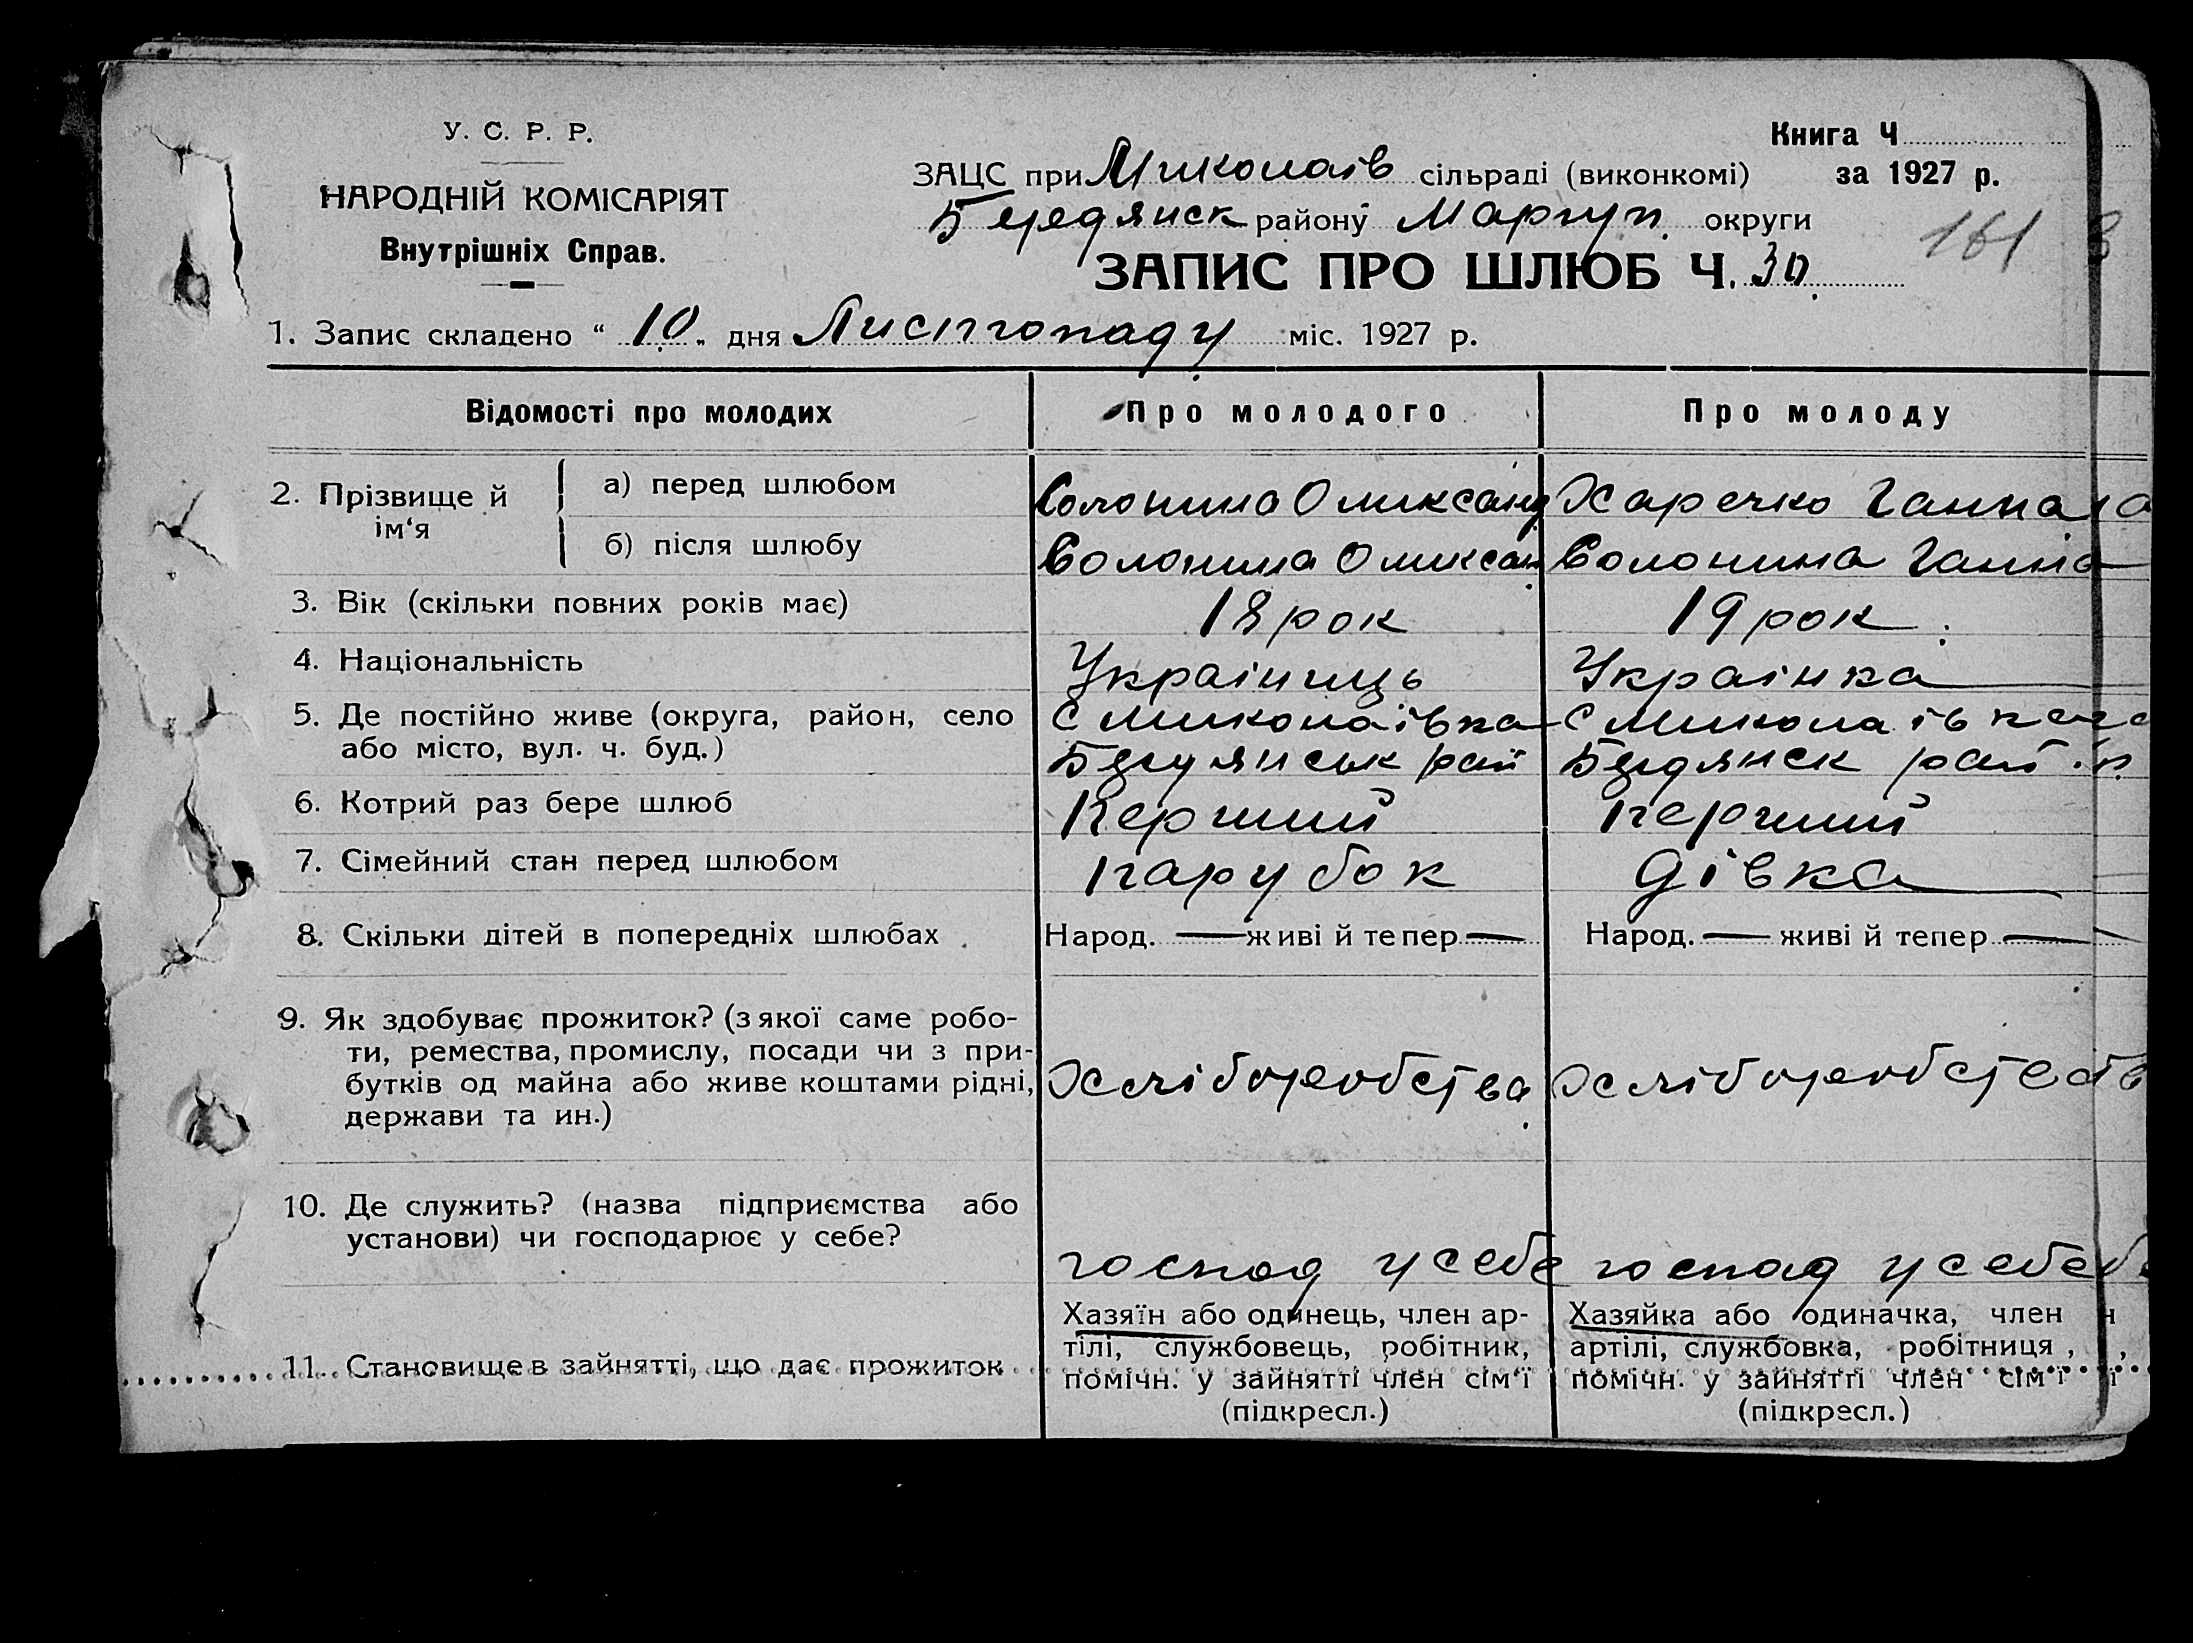 У. С. Р. Р.
НАРОДНІЙ КОМІСАРІЯТ
Внутрішніх Справ.
Книга Ч
ЗАЦС при Миколаїв сільраді (виконкомі) за 1927 р.
Бердянск району Маріуп. округи
161
ЗАПИС ПРО ШЛЮБ Ч. 30
1. Запис складено “ 10 „ дня Листопаду міс. 1927 р.
Відомості про молодих Про молодого Про молоду
2. Прізвище й ім‘я
а) перед шлюбом Солонина Олександ Харечко Ганна
б) після шлюбу Солонина Олексан Солонина Ганна
3. Вік (скільки повних років має) 18 рок 19 рок
4. Національність Україниць Українка
5. Де постійно живе (округа, район, село С Миколаівка С Миколаівка
або місто, вул. ч. буд.) рай Бердянск рай
6. Котрий раз бере шлюб Перший перший
7. Сімейний стан перед шлюбом парубок дівка
8. Скільки дітей в попередніх шлюбах Народ. — живі й тепер — Народ. — живі й тепер —
9. Як здобуває прожиток? (з якої саме робо-
ти, ремества, промислу, посади чи з при-
бутків од майна або живе коштами рідні, Хліборобства Хліборобства
держави та ин.)
10. Де служить? (назва підприємства або
установи) чи господарює у себе? господ у себе господ у себе
Хазяїн або одинець, член ар- Хазяйка або одиначка, член
тілі, службовець, робітник, артілі, службовка, робітниця,
11. Становище в зайнятті, що дає прожиток помічн. у зайнятті член сім‘ї помічн. у зайнятті член сім‘ї
(підкресл.) (підкресл.)